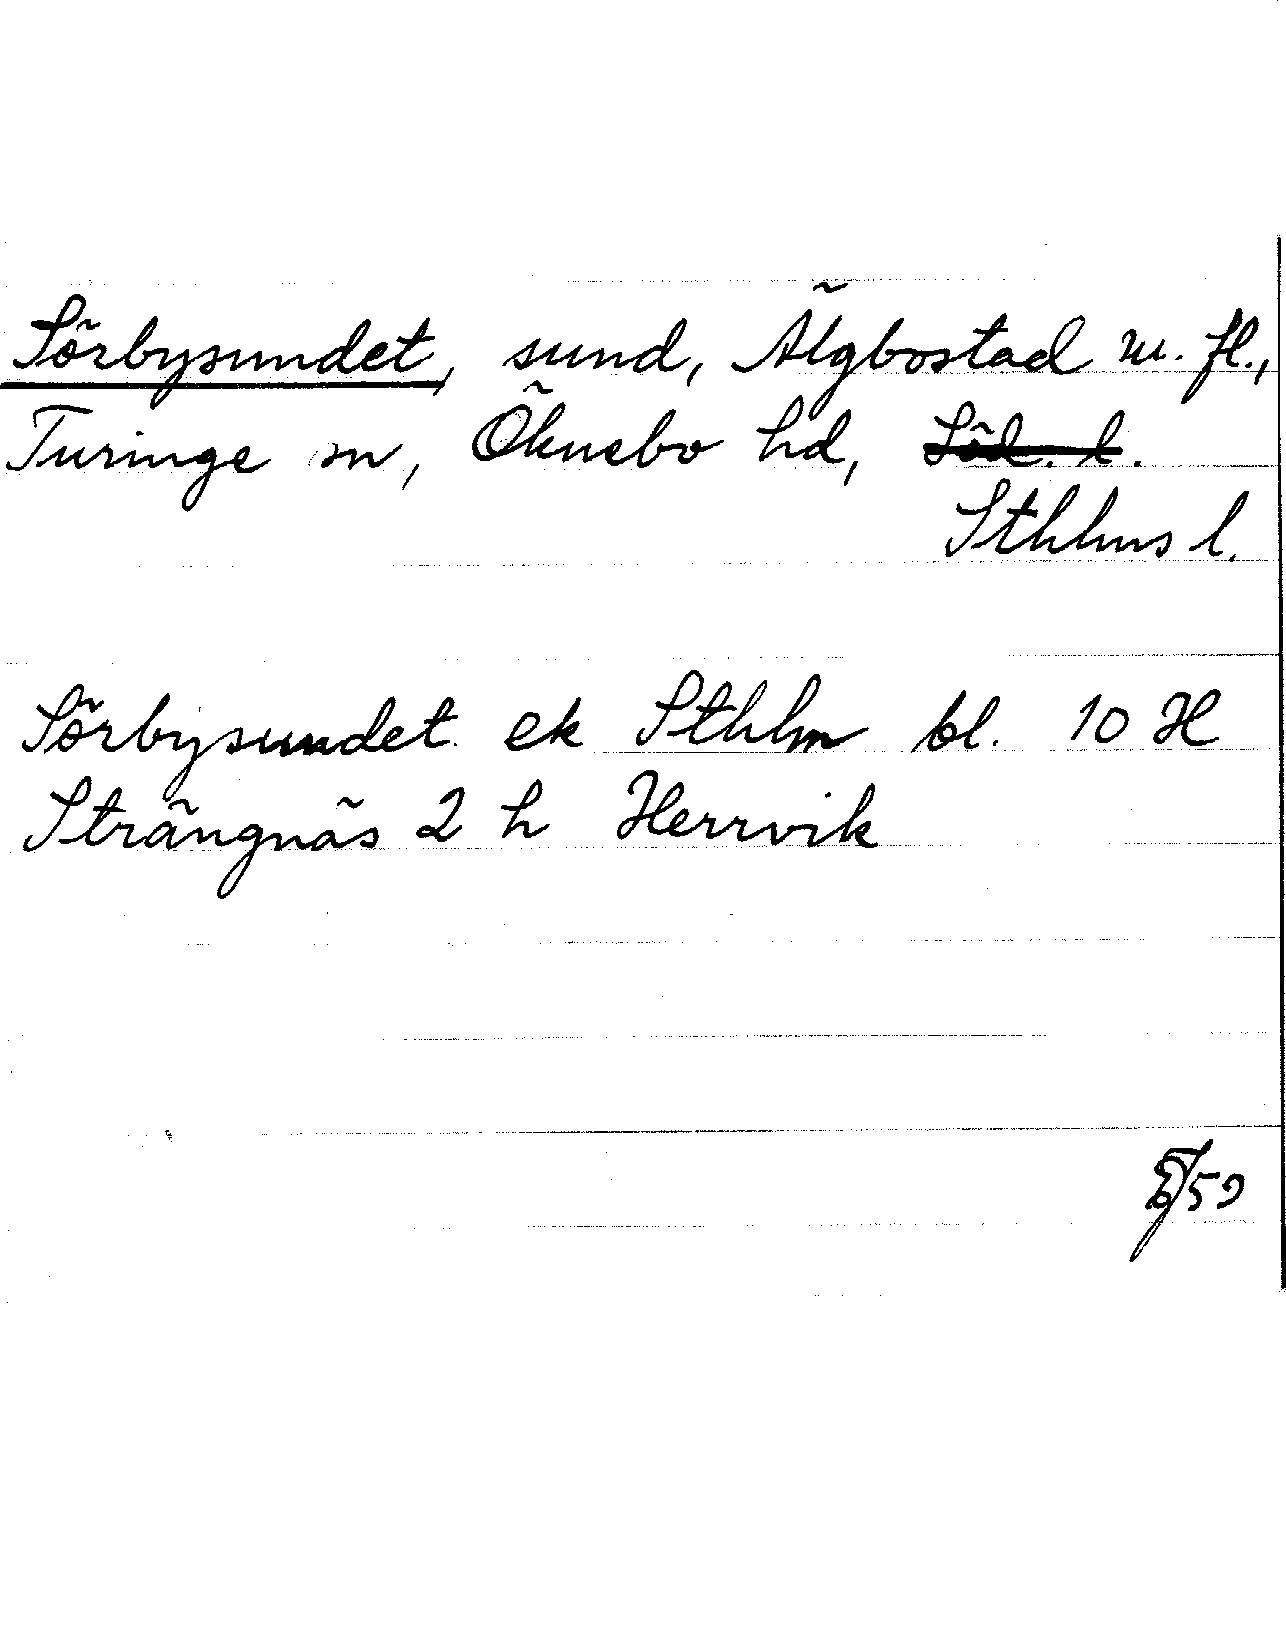 Sörbysundet, sund, Älgbostad m. fl.,
Turinge sn, Öknebo hd, Söd. l.
Sthlms l.
Sörbysundet ek Sthlm bl. 10 H
Strängnäs 2 h Herrvik
59